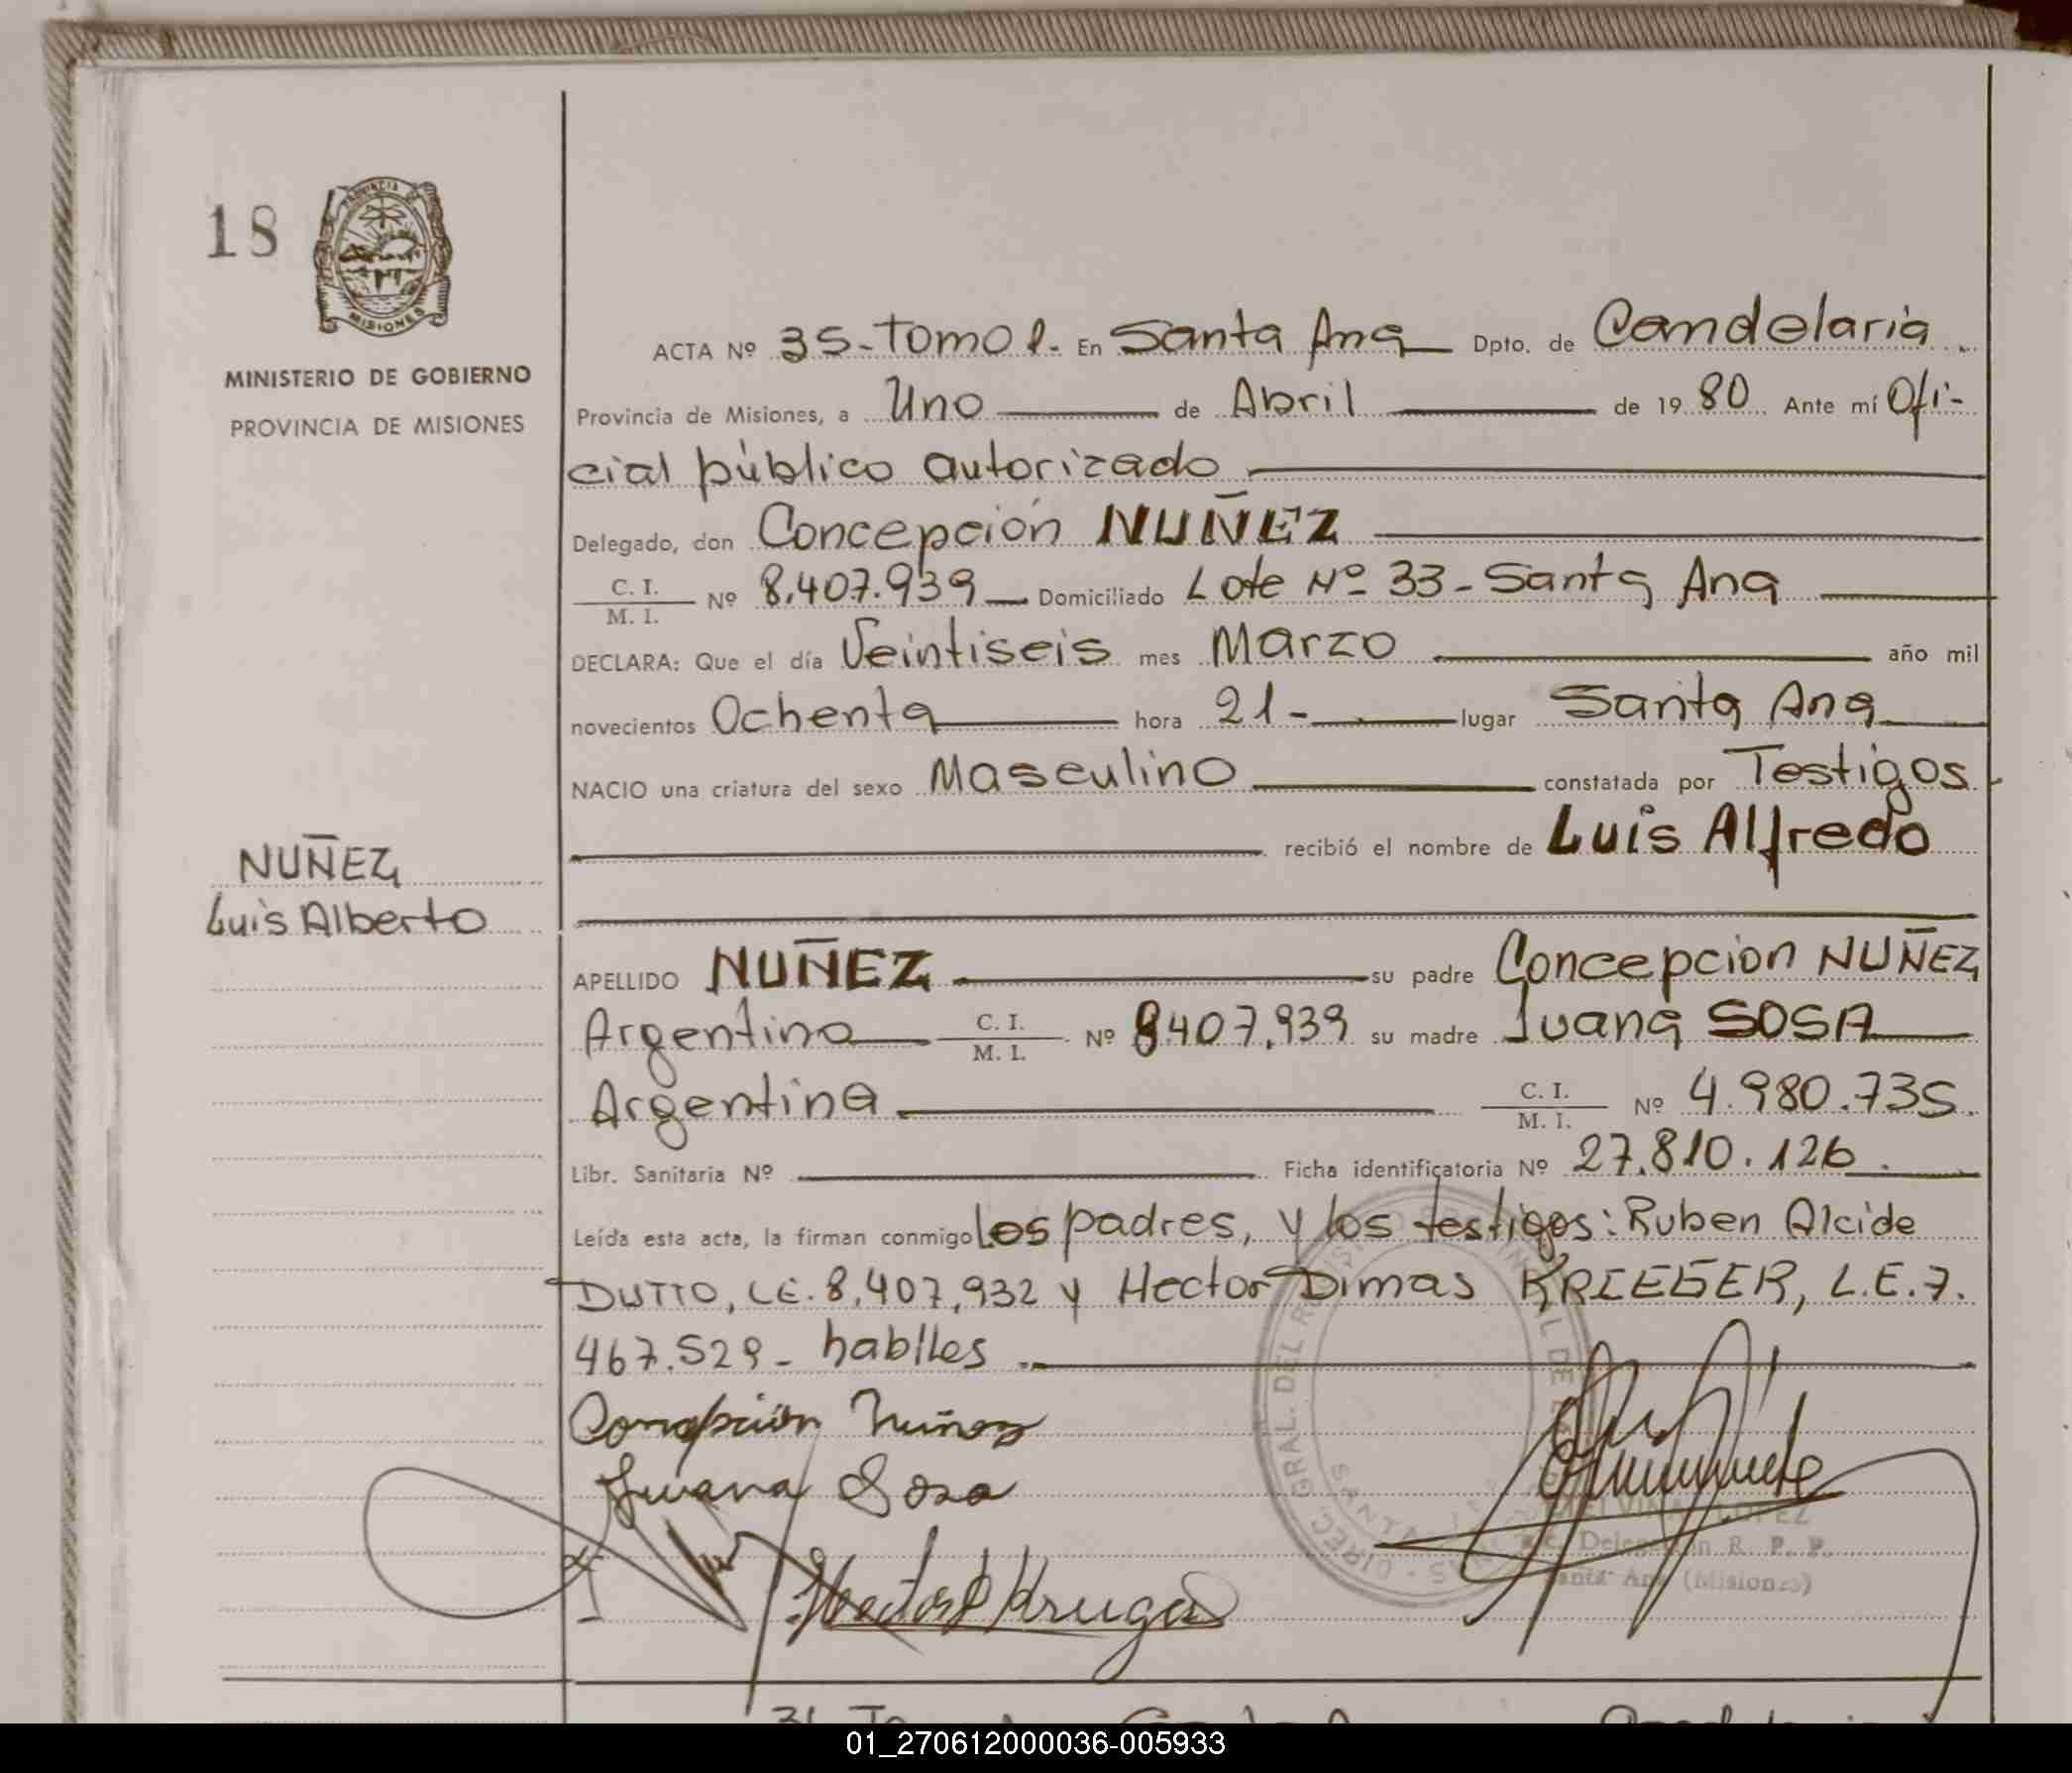 18
PROVINCIA DE
MISIONES
MINISTERIO DE GOBIERNO
PROVINCIA DE MISIONES
NUÑEZ
Luis Alberto
ACTA Nº 35-Tomo 1. En Santa Ana Dpto. de Candelaria
Provincia de Misiones, a Uno de Abril de 1980 Ante mí Ofi-
cial público autorizado
Delegado, don Concepción NUÑEZ
C. I.
M. I. Nº 8.407.939 Domiciliado Lote Nº 33-Santa Ana
DECLARA: Que el día Veintiseis mes Marzo año mil
novecientos Ochenta hora 21- lugar Santa Ana
NACIO una criatura del sexo Masculino constatada por Testigos
recibió el nombre de Luis Alfredo
APELLIDO NUÑEZ su padre Concepcion NUÑEZ
Argentino C. I. M. I. Nº 8.407.939 su madre Juana SOSA
Argentina C. I. M. I. Nº 4.980.735.
Libr. Sanitaria Nº Ficha identificatoria Nº 27.810.126.
Leída esta acta, la firman conmigo los padres, y los testigos: Ruben Alcide
DUTTO, LE. 8,407,932 y Hector Dimas KRIEGER, L.E.7.
467.529- habiles
Concepcion Nuñez
Juana Sosa
Delegación R. P. P.
Santa Ana (Misiones)
01_270612000036-005933